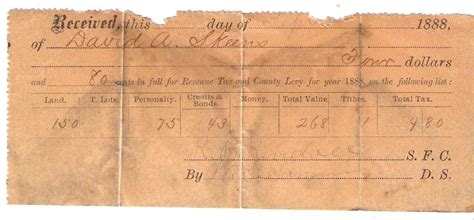 Received, this day of 1888,
of David A. Skeens
Four dollars
and 80 cents in full for Revenue Tax and County Levy for year 188 on the following list:
Land. T. Lots. Personalty. Credits & Bonds. Money. Total Value Tithes. Total Tax.
150 75 43 268 1 4.80
S. F. C.
By D. S.